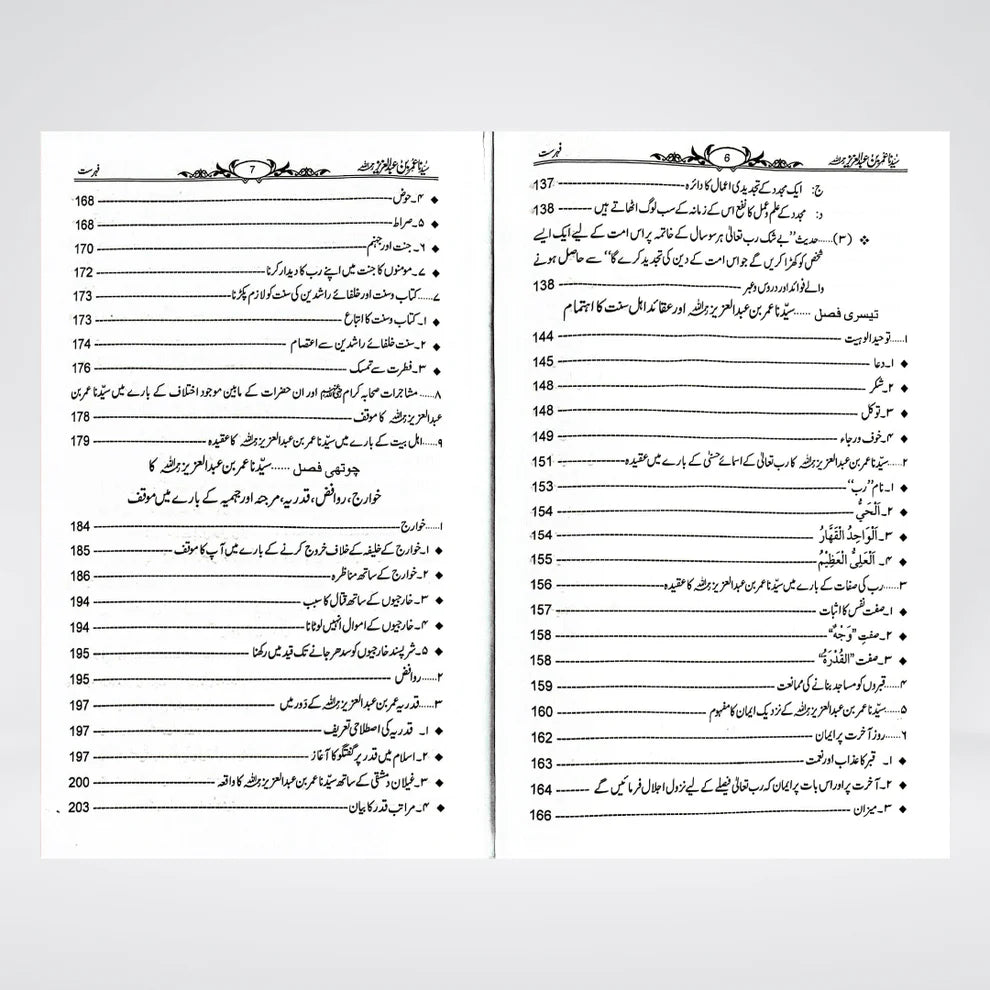 سیّدنا عمر بن عبدالعزیز رحمہ اللہ 6 فہرست
ج: ایک مجدد کے تجدیدی اعمال کا دائرہ 137
د: مجدد کے علم و عمل کا نفع اس کے زمانہ کے سب لوگ اٹھاتے ہیں 138
❖ (۳)..... حدیث ’’بے شک رب تعالیٰ ہر سو سال کے خاتمہ پر اس امت کے لیے ایک ایسے
شخص کو کھڑا کریں گے جو اس امت کے دین کی تجدید کرے گا‘‘ سے حاصل ہونے
والے فوائد اور دروس و عبر 138
تیسری فصل ..... سیّدنا عمر بن عبدالعزیز رحمہ اللہ اور عقائد اہل سنت کا اہتمام
۱..... توحید الوہیت 144
◆ ۱۔ دعا 145
◆ ۲۔ شکر 148
◆ ۳۔ توکل 148
◆ ۴۔ خوف و رجاء 149
۲..... سیّدنا عمر بن عبدالعزیز رحمہ اللہ کا رب تعالیٰ کے اسمائے حسنیٰ کے بارے میں عقیدہ 151
◆ ۱۔ نام ’’رب‘‘ 153
◆ ۲۔ اَلْحَيُّ 154
◆ ۳۔ اَلْوَاحِدُ الْقَهَّارُ 154
◆ ۴۔ اَلْعَلِيُّ الْعَظِيْمُ 155
۳..... رب کی صفات کے بارے میں سیّدنا عمر بن عبدالعزیز رحمہ اللہ کا عقیدہ 156
◆ ۱۔ صفت نفس کا اثبات 157
◆ ۲۔ صفتِ ’’وَجْهٌ‘‘ 158
◆ ۳۔ صفت ’’اَلْقُدْرَةُ‘‘ 158
۴..... قبروں کو مساجد بنانے کی ممانعت 159
۵..... سیّدنا عمر بن عبدالعزیز رحمہ اللہ کے نزدیک ایمان کا مفہوم 160
۶..... روزِ آخرت پر ایمان 162
◆ ۱۔ قبر کا عذاب اور نعمت 163
◆ ۲۔ آخرت پر اور اس بات پر ایمان کہ رب تعالیٰ فیصلے کے لیے نزول اجلال فرمائیں گے 164
◆ ۳۔ میزان 166
سیّدنا عمر بن عبدالعزیز رحمہ اللہ 7 فہرست
◆ ۴۔ حوض 168
◆ ۵۔ صراط 168
◆ ۶۔ جنت اور جہنم 170
◆ ۷۔ مومنوں کا جنت میں اپنے رب کا دیدار کرنا 172
۷..... کتاب و سنت اور خلفائے راشدین کی سنت کو لازم پکڑنا 173
◆ ۱۔ کتاب و سنت کا اتباع 173
◆ ۲۔ سنت خلفائے راشدین سے اعتصام 174
◆ ۳۔ فطرت سے تمسک 176
۸..... مشاجرات صحابہ کرام رضی اللہ عنہم اور ان حضرات کے مابین موجود اختلاف کے بارے میں سیّدنا عمر بن
عبدالعزیز رحمہ اللہ کا موقف 178
۹..... اہل بیت کے بارے میں سیّدنا عمر بن عبدالعزیز رحمہ اللہ کا عقیدہ 179
چوتھی فصل ..... سیّدنا عمر بن عبدالعزیز رحمہ اللہ کا
خوارج، روافض، قدریہ، مرجئہ اور جہمیہ کے بارے میں موقف
۱..... خوارج 184
◆ ۱۔ خوارج کے خلیفہ کے خلاف خروج کرنے کے بارے میں آپ کا موقف 185
◆ ۲۔ خوارج کے ساتھ مناظرہ 186
◆ ۳۔ خارجیوں کے ساتھ قتال کا سبب 194
◆ ۴۔ خارجیوں کے اموال انہیں لوٹانا 194
◆ ۵۔ شر پسند خارجیوں کو سدھر جانے تک قید میں رکھنا 195
۲..... روافض 195
۳..... قدریہ عمر بن عبدالعزیز رحمہ اللہ کے دَور میں 197
◆ ۱۔ قدریہ کی اصطلاحی تعریف 197
◆ ۲۔ اسلام میں قدر پر گفتگو کا آغاز 197
◆ ۳۔ غیلان دمشقی کے ساتھ سیّدنا عمر بن عبدالعزیز رحمہ اللہ کا واقعہ 200
◆ ۴۔ مراتب قدر کا بیان 203